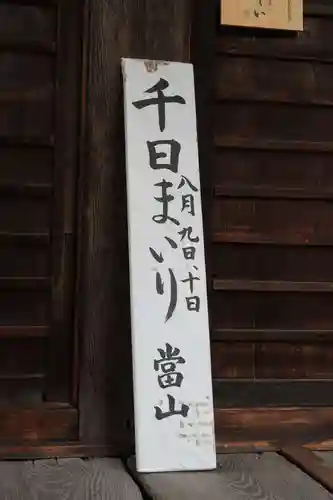 千日まいり
八月九日、十日
當山
い